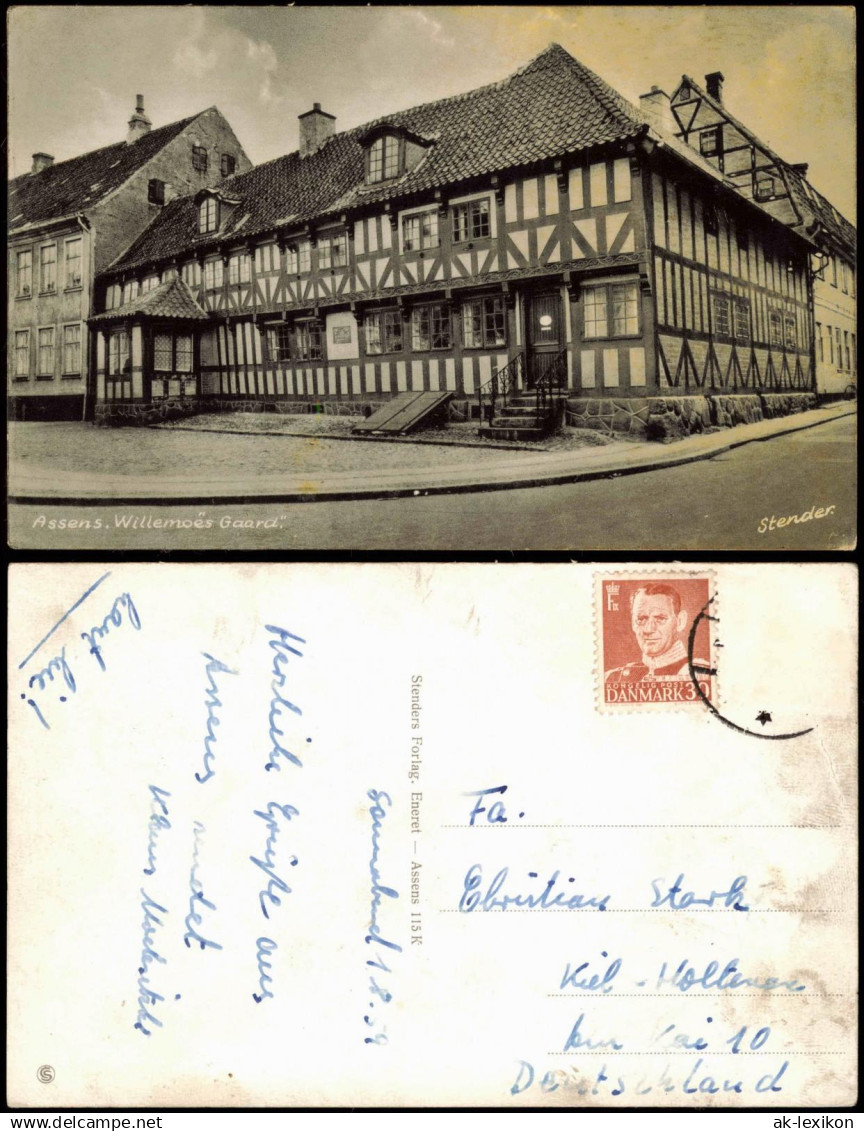 Assens. "Willemoës Gaard".
Stender.
haut hin!
Herzliche Grüße aus
Assens sendet
Klaus
Sonnabend 1.8.59
Stenders Forlag. Eneret — Assens 115 K
KONGELIG POST
DANMARK 30
Fa.
Christian Stark
Kiel - Holtenau
Am Kai 10
Deutschland
ak-lexikon